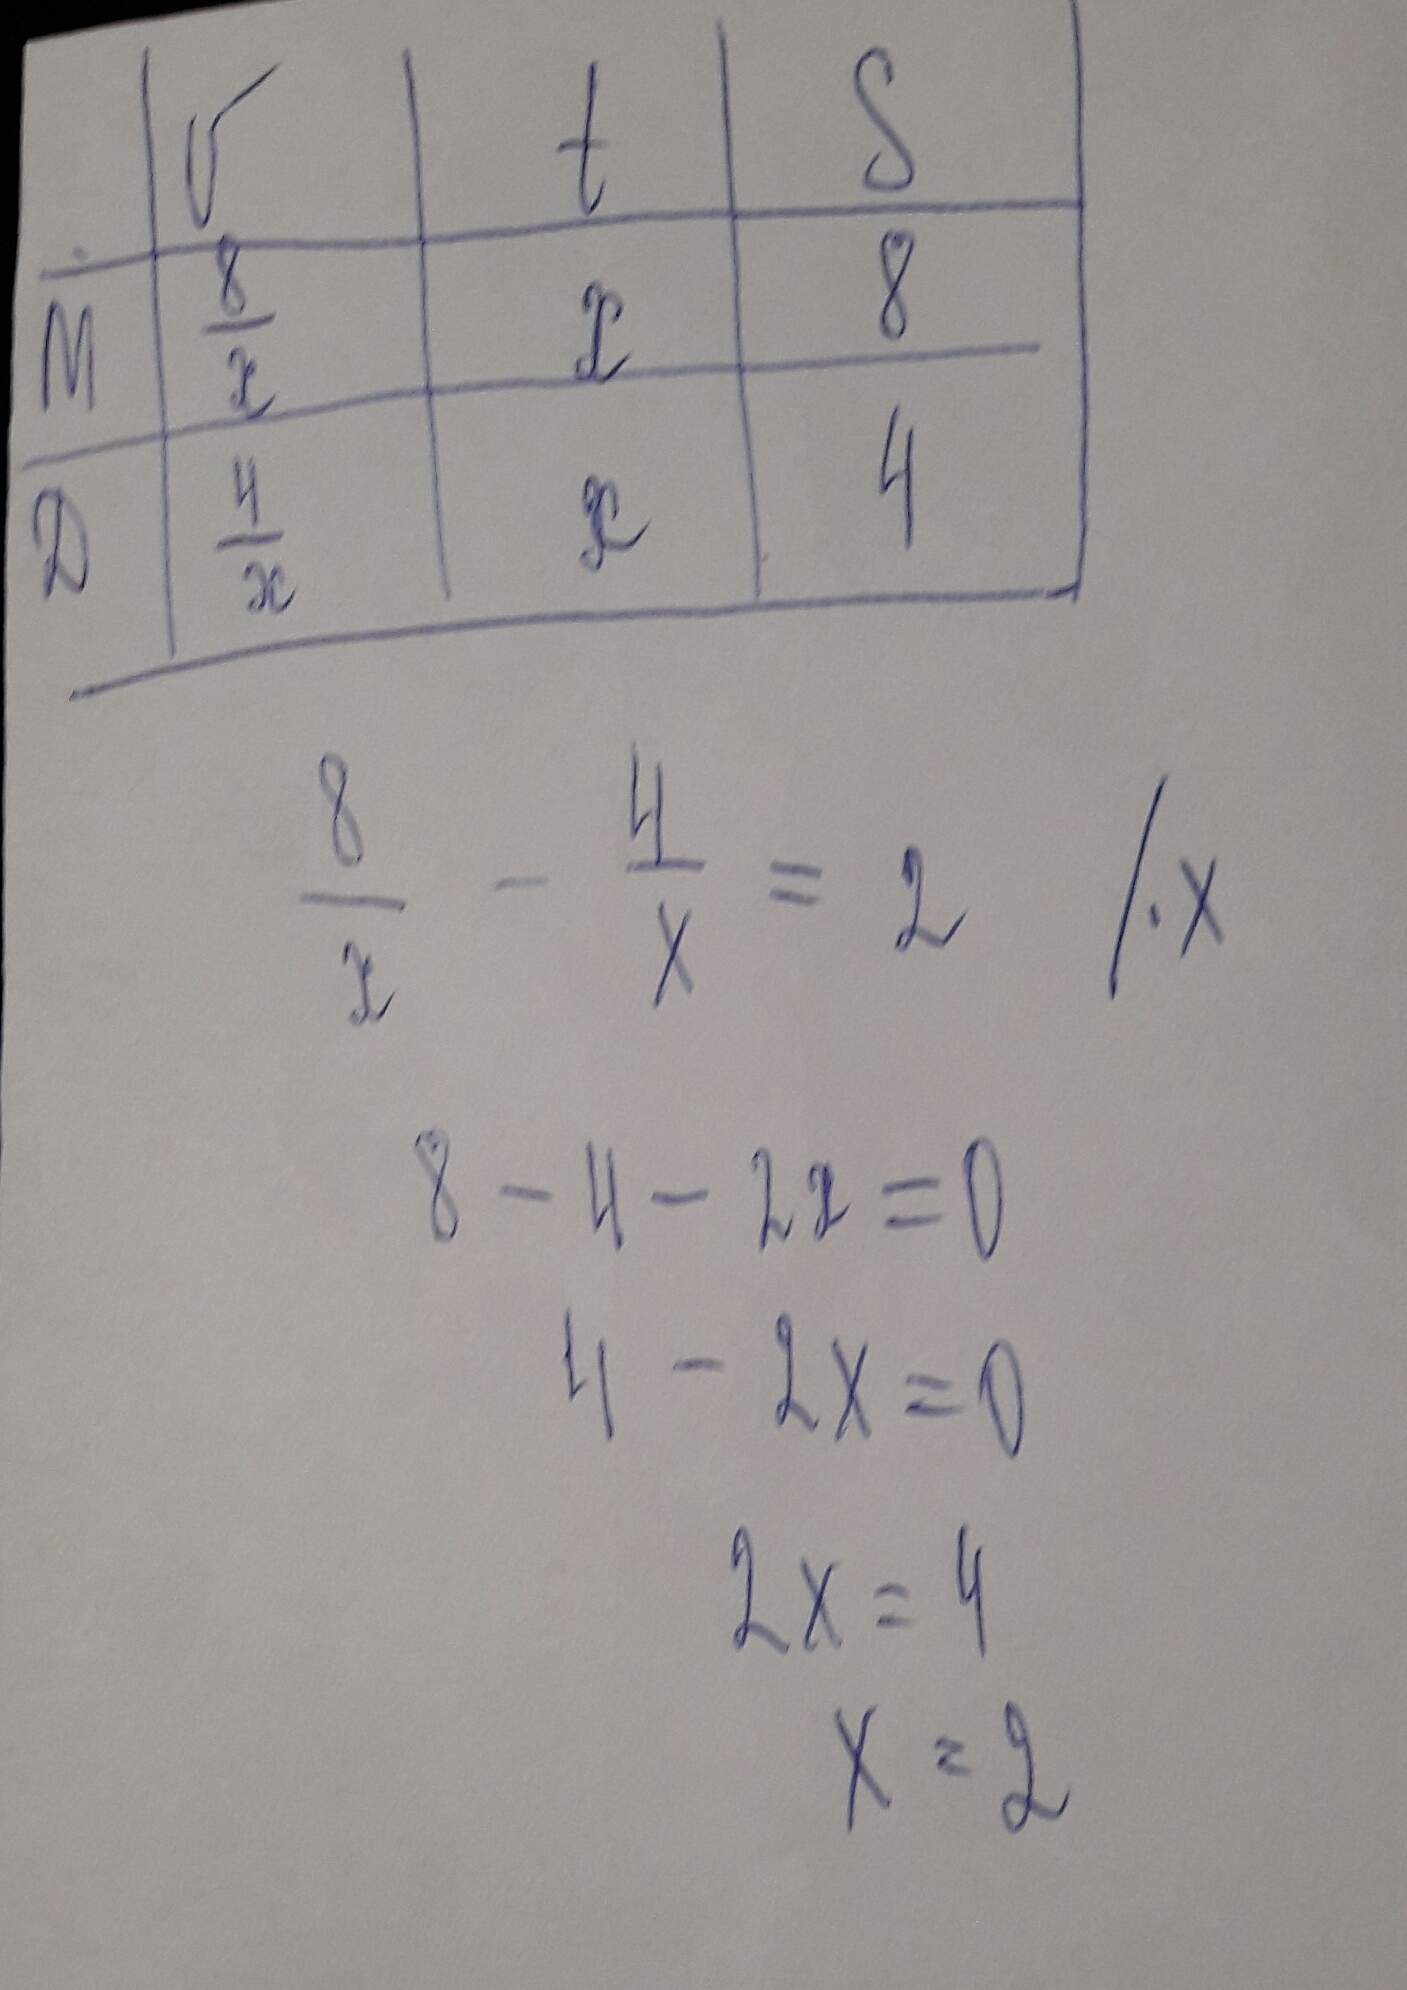 v t S
M 8/x x 8
D 4/x x 4
8/x - 4/x = 2 /·x
8 - 4 - 2x = 0
4 - 2x = 0
2x = 4
x = 2